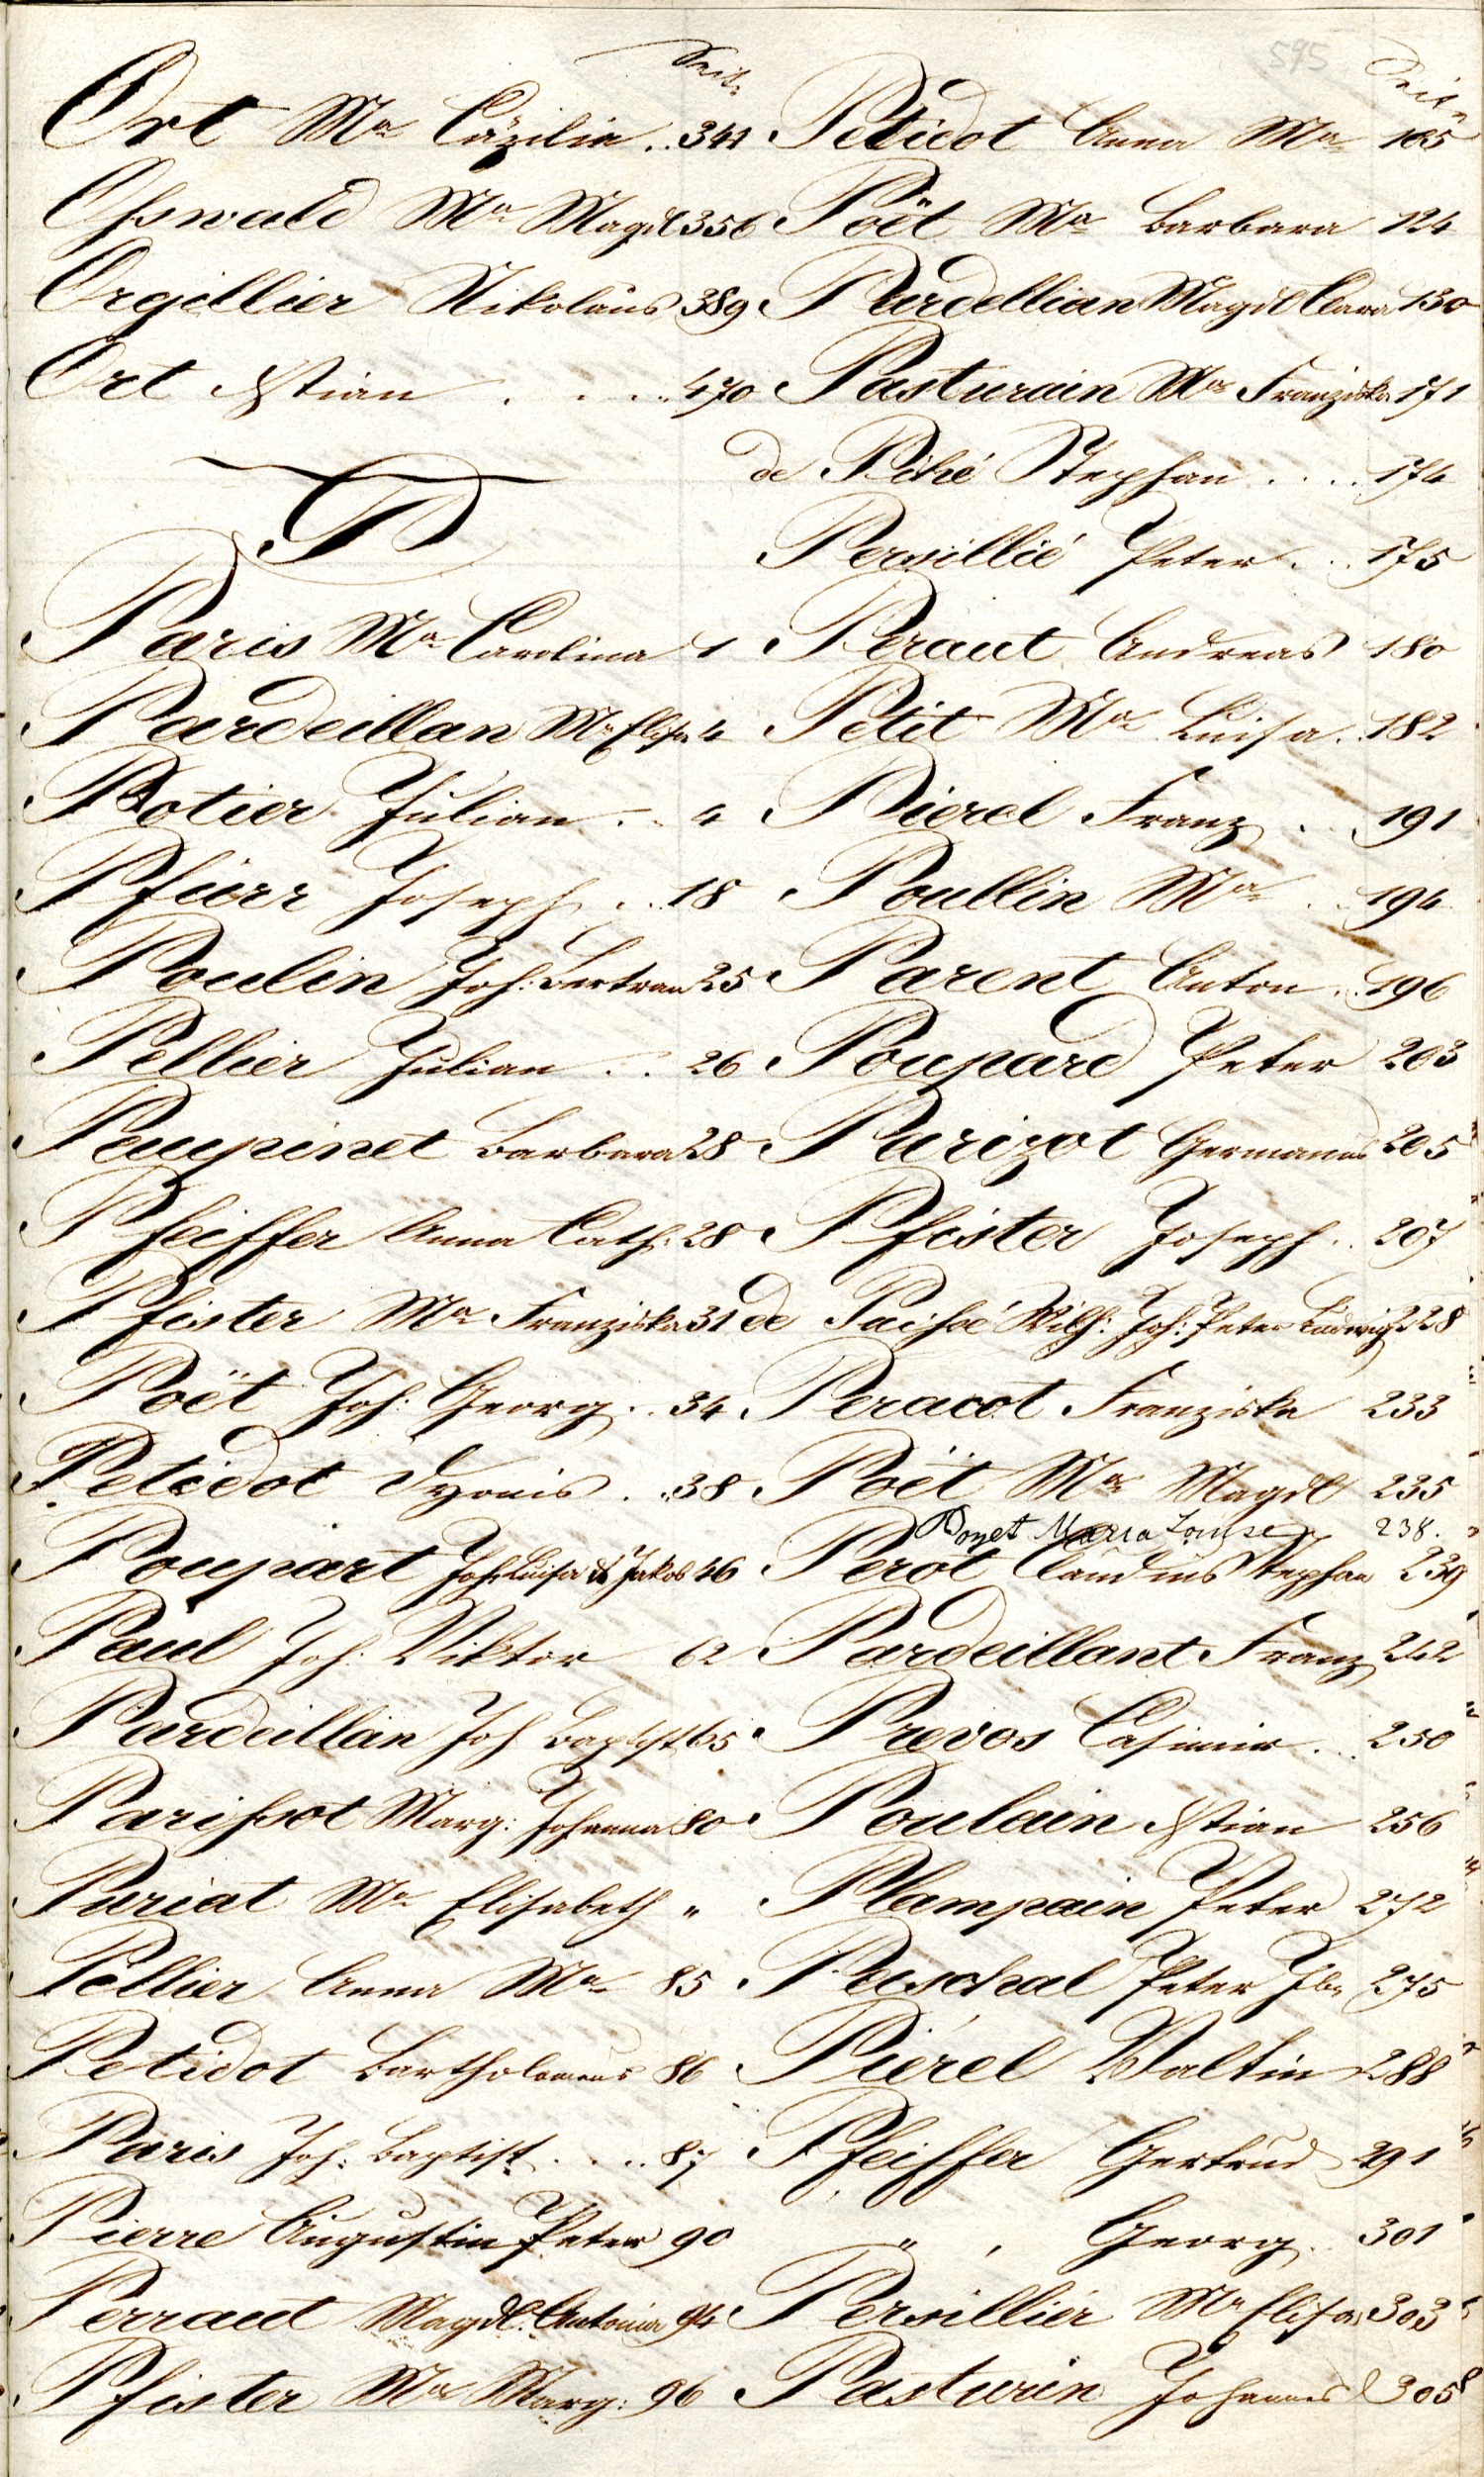 Seite
Ort Ma Cäzilia .. 341
Oßwald Ma Magdl 356
Orgillier Nikolaus 389
Ort Xstian . . . . 470
P
Paris Ma Carolina 1
Pardeillan Ma Elisa 4
Potier Julian . . 4
Pfürr Joseph . . 18
Poulin Joh: Bertran 25
Pellier Julian . . 26
Peupinet Barbara 28
Pfeiffer Anna Cath: 28
Pfister Ma Franziska 31
Poët Joh: Georg . . 34
Petidot Dyonis . . 38
Poupart Joh: Luisa & Jakob 46
Paul Joh: Viktor 62
Pardeillan Joh Baptist 65
Parißot Marg: Johanna 80
Puriat Ma Elisabeth "
Pellier Anna Ma 85
Petidot Bartholomeus 86
Paris Joh: Baptist . . . . 87
Pierre Augustin Peter 90
Perraut Magdl. Antonia 94
Pfister Ma Marg: 96
595
Seite
Petidot Anna Ma 105
Poët Ma Barbara 124
Pardellian Magdl Clara 130
Pasturain Ma Franziska 171
de Piké Stephan . . . . 174
Persillié Peter . . . 175
Peraut Andreas 180
Petit Ma Luisa . 182
Pierel Franz . . 191
Poullin Ma . . 194
Parent Anton . . 196
Poupard Peter 203
Parizot Germanus 205
Pfister Joseph . . 207
de Paißé Wilh: Joh: Peter Ludwig 228
Peracot Franziska 233
Poët Ma Magdl 235
Poyet Maria Louise 238.
Perot Claudius Stephan 239
Pardeillant Franz 242
Prevos Casimir . . . 250
Poulain Xstian 256
Plampain Peter 272
Paschal Peter 275
Pierel Valtin 288
Pfeiffer Gertrud 291
" , Georg . 301
Persillier Ma Elisa 303
Pasturin Johannes 305